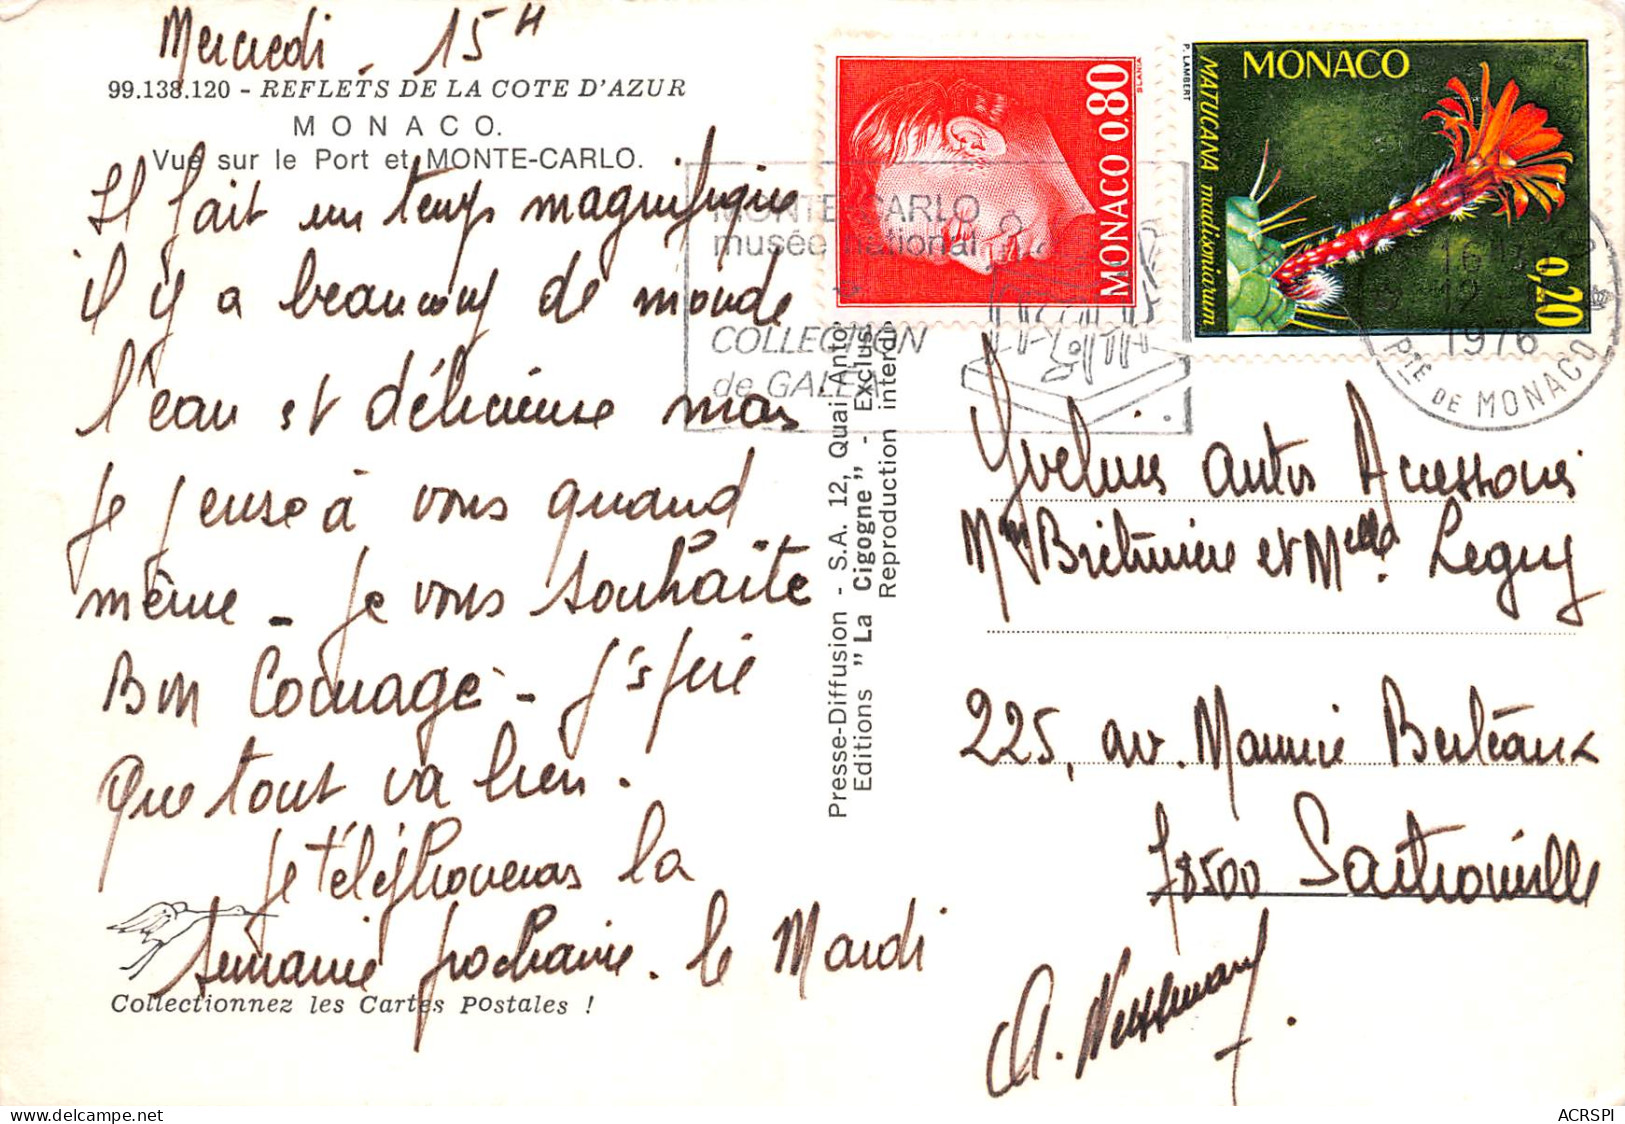 Mercredi - 15H
99.138.120 - REFLETS DE LA COTE D'AZUR
MONACO.
Vue sur le Port et MONTE-CARLO.
Il fait un temps magnifique
il y a beaucoup de monde
l'eau est délicieuse mais
Je pense à vous quand
même - Je vous souhaite
Bon Courage - J'espère
Que tout va bien.
Je téléphonerais la
semaine prochaine. le Mardi
Collectionnez les Cartes Postales !
Presse-Diffusion - S.A. 12, Quai Anto
Editions "La Cigogne" - Exclus
Reproduction interdi
MONACO 0.80
SLANIA
MONACO
P. LAMBERT
MATUCANA madisoniarum
0,20
MONTE-CARLO
musée national
COLLECTION
de GALEA
16
1976
PTE DE MONACO
Yvelines Autos Accessoires
Mme et Melle Leguy
225, av. Maurice Berteaux
78500 Sartrouville
A.
ACRSPI